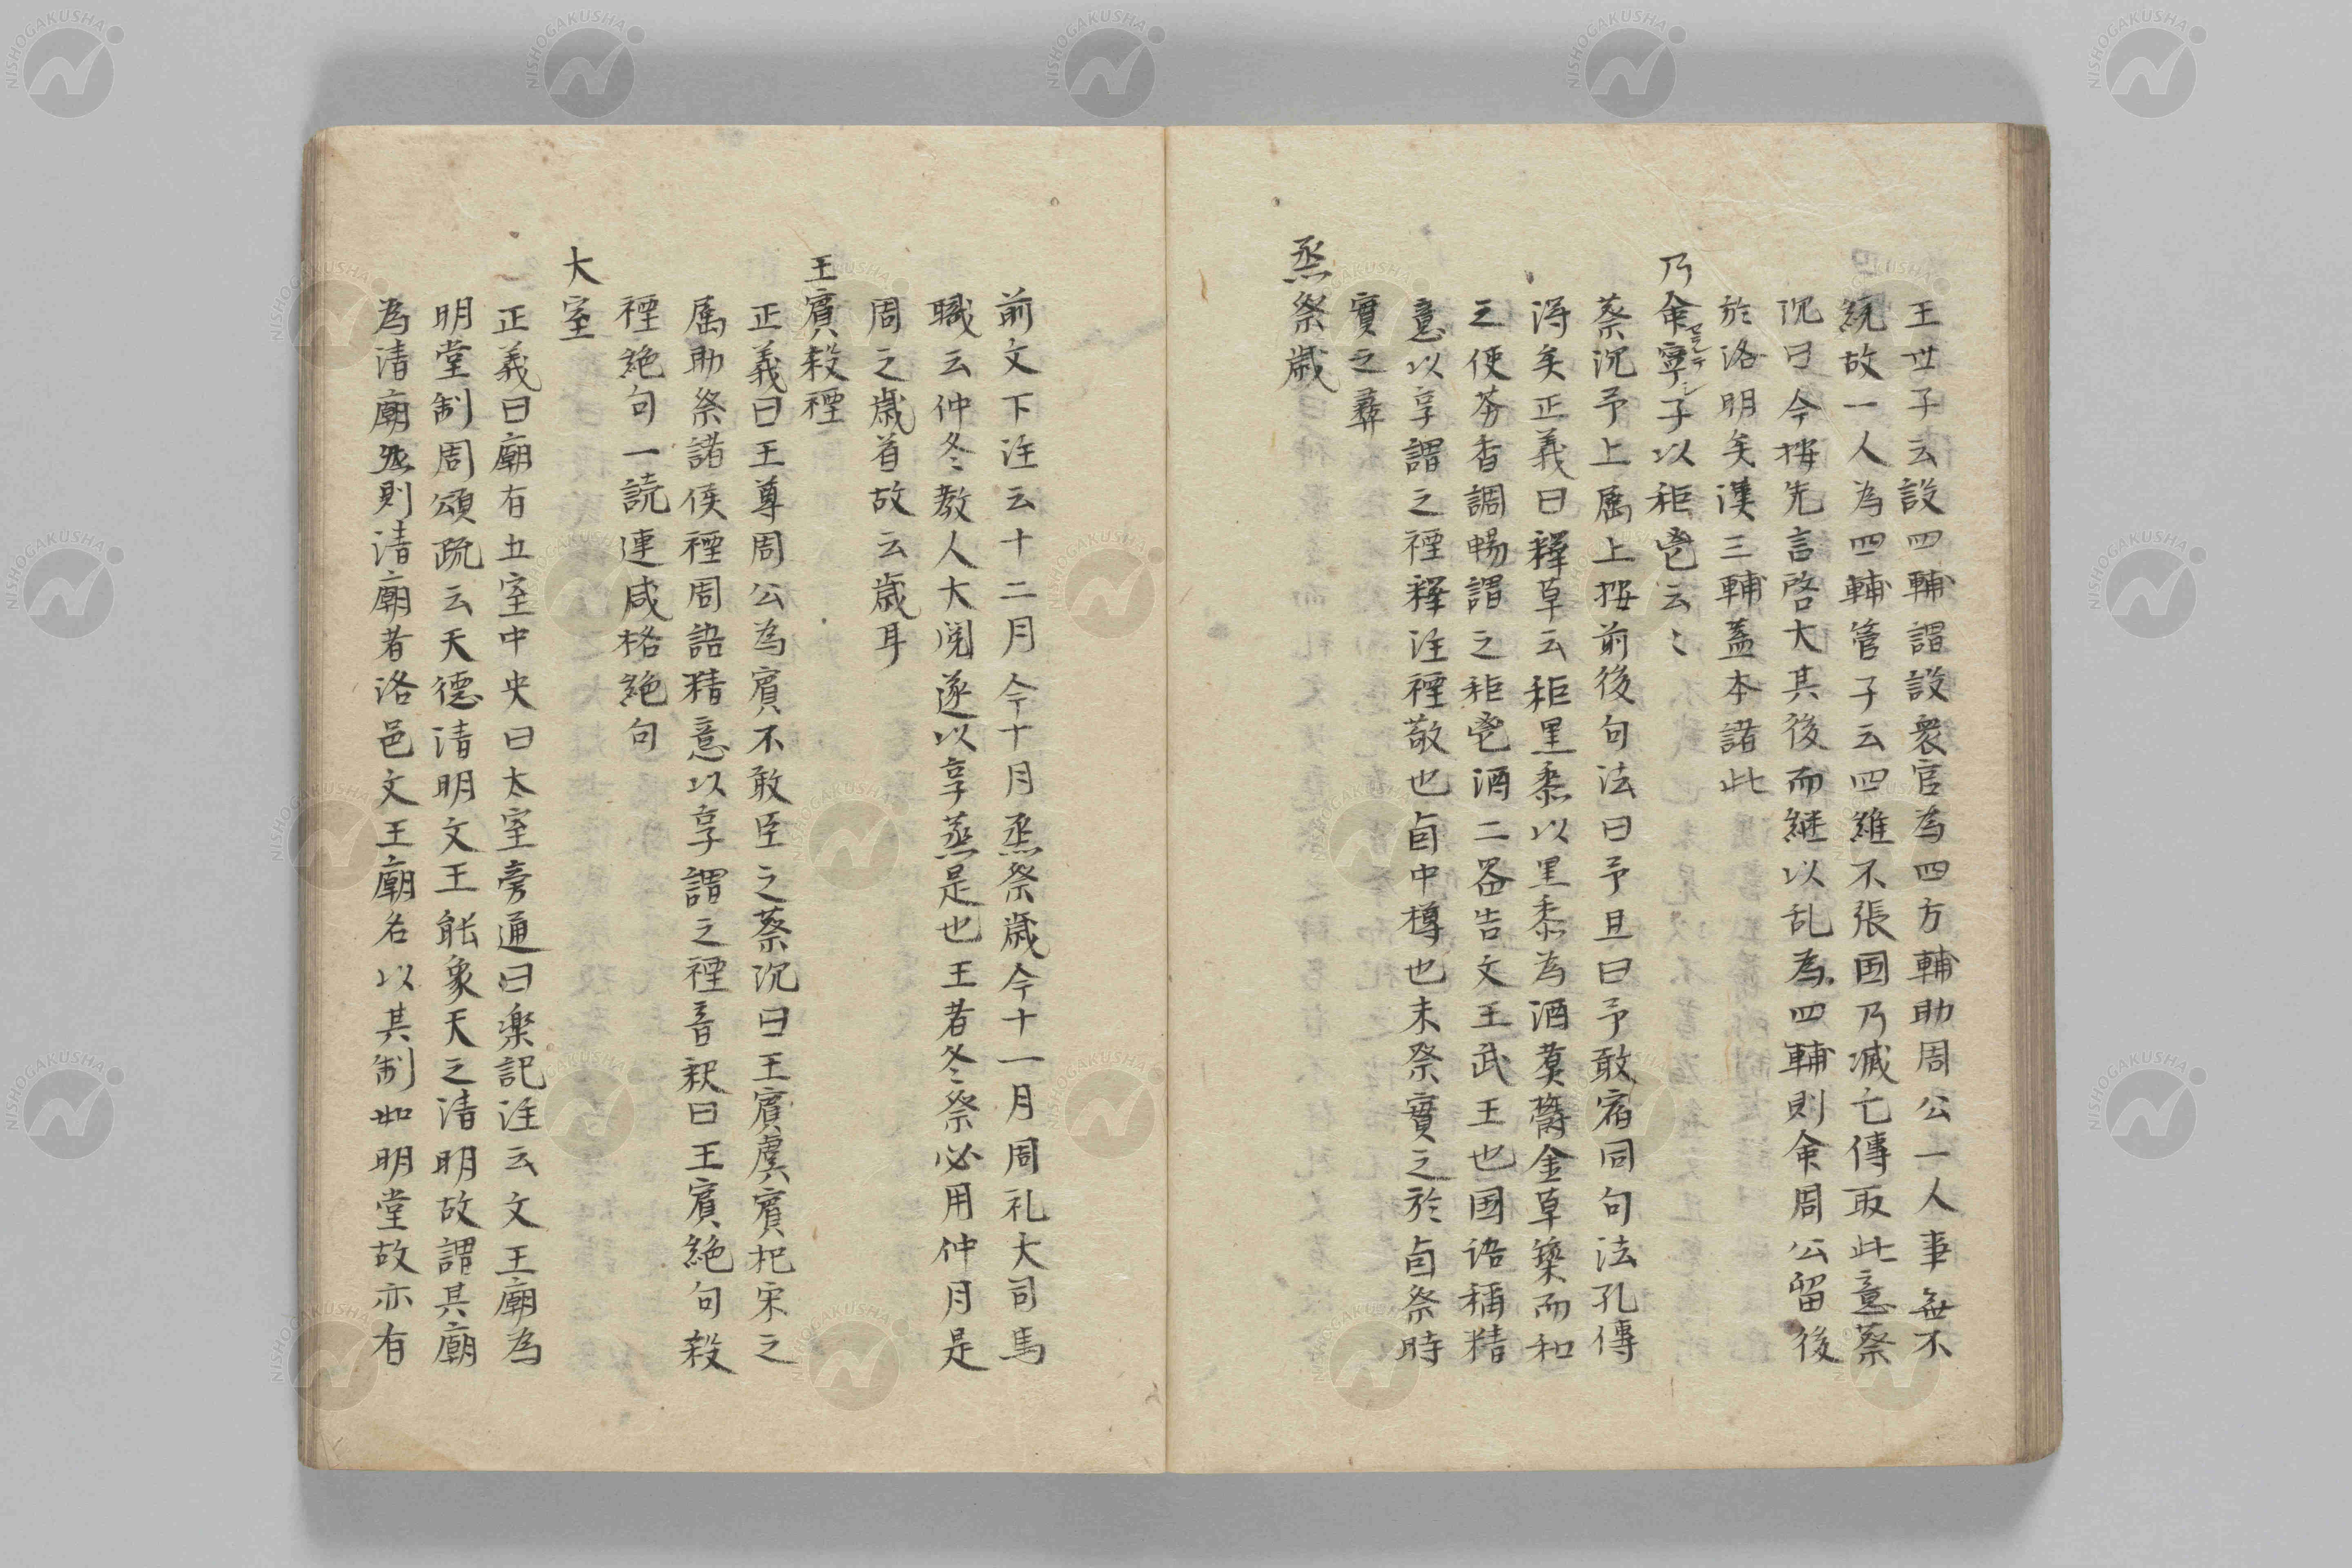 王世子云設四輔謂設衆官為四方輔助周公一人事無不
統故一人為四輔管子云四維不張国乃滅亡傳取此意蔡
沉曰今按先言啓大其後而継以乱為四輔則命周公留後
於洛明矣漢三輔蓋本諸此
乃命寧予以秬鬯云〻
蔡沉予上属上按前後句法曰予旦曰予敢宿同句法孔傳
得矣正義曰釋草云秬黒黍以黒黍為酒煑欝金草築而和
之使芬香調暢謂之秬鬯酒二器告文王武王也国语稱精
意以享謂之禋釋注禋敬也卣中樽也未祭實之於卣祭時
實之彝
烝祭歳
前文下注云十二月今十月烝祭歳今十一月周礼大司馬
職云仲冬教人大閲遂以享蒸是也王者冬祭必用仲月是
周之歳首故云歳耳
王賓殺禋
正義曰王尊周公為賓不敢臣之蔡沉曰王賓虞賓杞宋之
属助祭諸侯禋周語精意以享謂之禋音釈曰王賓絶句殺
禋絶句一読連咸格絶句
大室
正義曰廟有五室中央曰太室旁通曰楽記注云文王廟為
明堂制周頌疏云天德清明文王能象天之清明故謂其廟
為清廟然則清廟者洛邑文王廟名以其制如明堂故亦有
NISHOGAKUSHA